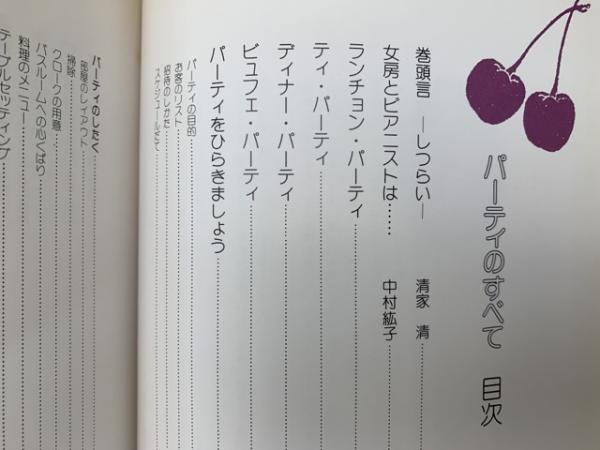 パーティのすべて 目次
巻頭言 ―しつらい― 清家 清
女房とピアニストは…… 中村紘子
ランチョン・パーティ
ティ・パーティ
ディナー・パーティ
ビュフェ・パーティ
パーティをひらきましょう
パーティの目的
お客のリスト
招待のしかた
スケジュールたて
パーティのしたく
部屋のレイアウト
掃除
クロークの用意
バスルームへの心くばり
料理のメニュー
テーブルセッティング